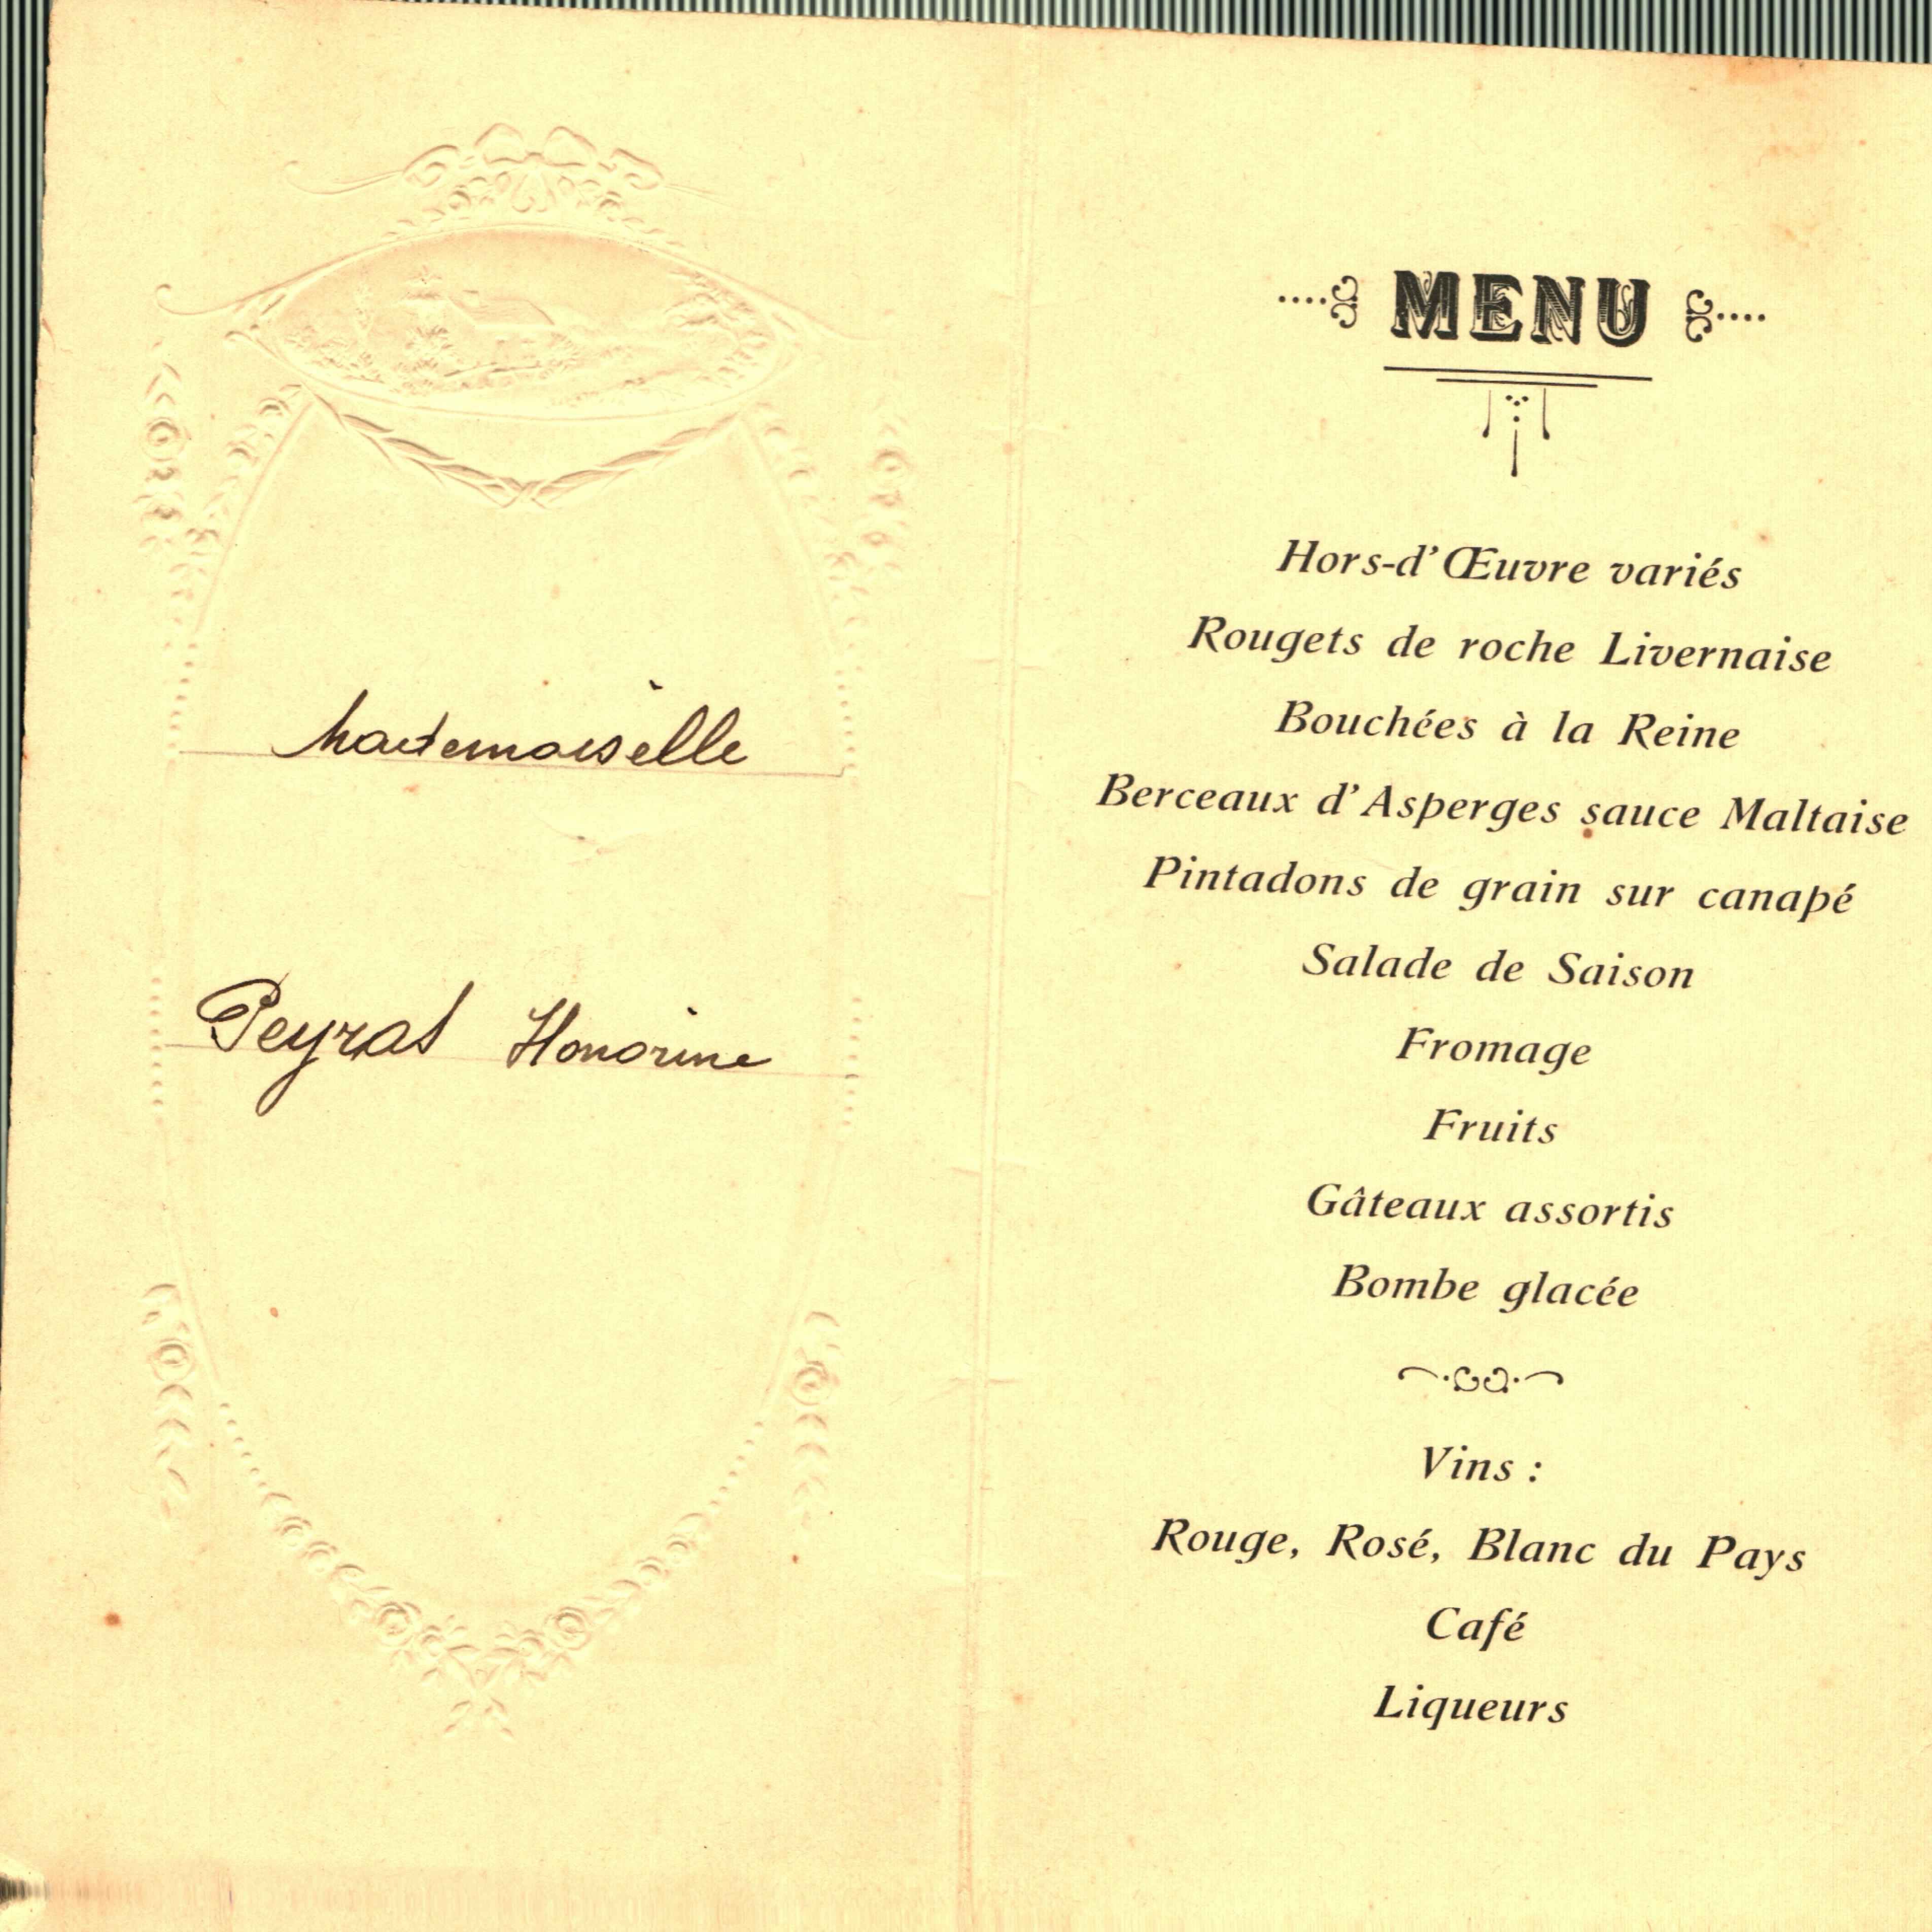 Mademoiselle
Peyrat Honorine
MENU
Hors-d'Œuvre variés
Rougets de roche Livernaise
Bouchées à la Reine
Berceaux d'Asperges sauce Maltaise
Pintadons de grain sur canapé
Salade de Saison
Fromage
Fruits
Gâteaux assortis
Bombe glacée
Vins :
Rouge, Rosé, Blanc du Pays
Café
Liqueurs